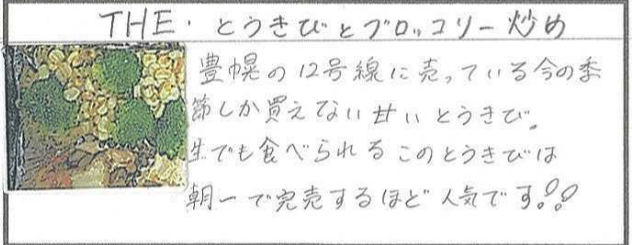 THE・とうきびとブロッコリー炒め
豊幌の12号線に売っている今の季
節しか買えない甘いとうきび。
生でも食べられるこのとうきびは
朝一で完売するほど人気です!!